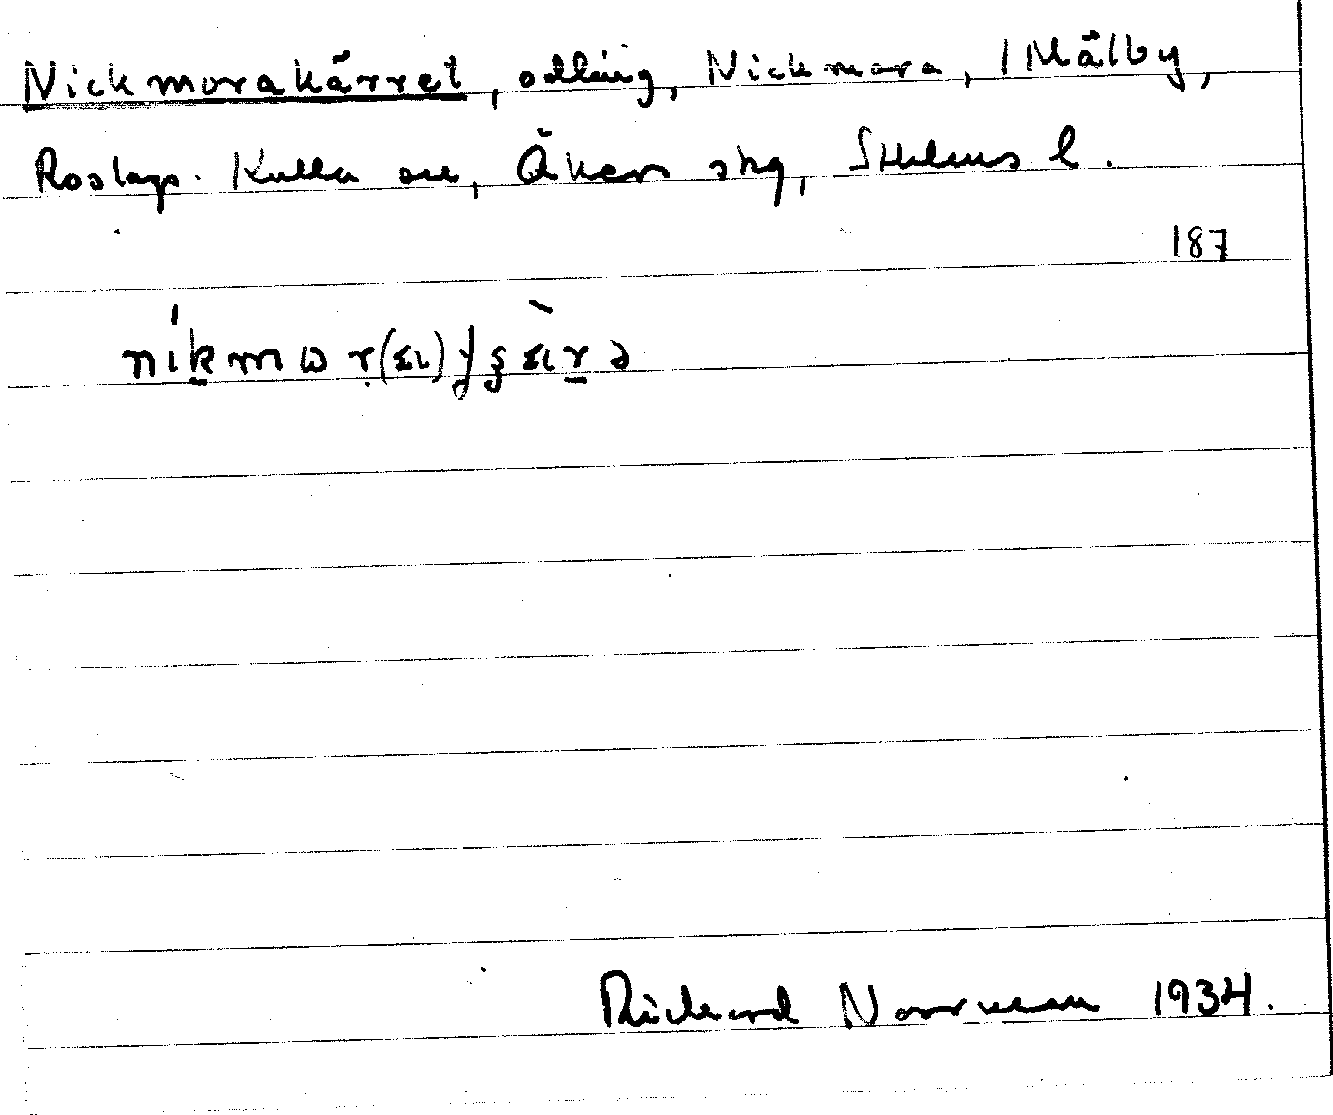 Nickmorakärret, odling, Nickmora, 1 Mälby,
Roslags-Kulla sn, Åkers skg, Sthlms l.
187
Rickard Norrman 1934.